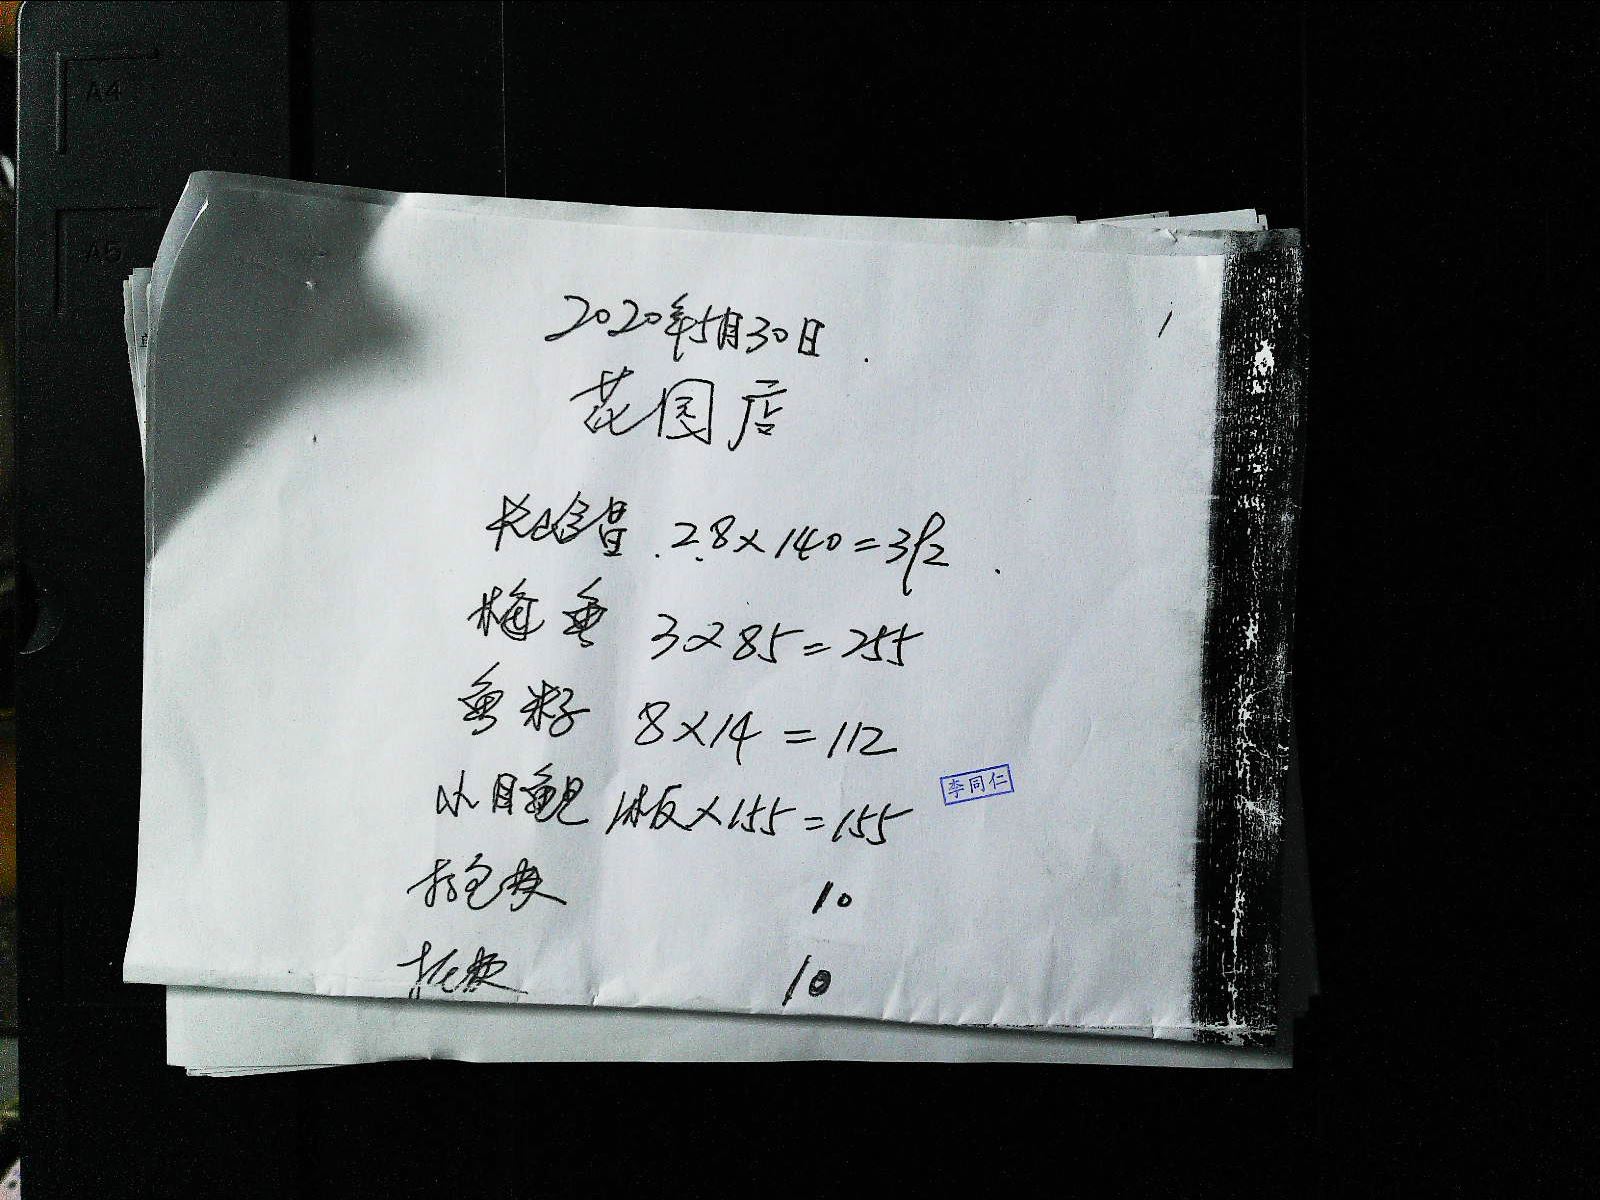 A4
A5
1
2020年5月30日
花园店
2.8×140=392
梅鱼 3×85=255
鱼籽 8×14=112
小目鱼 1板×155=155
李同仁
打包费 10
10